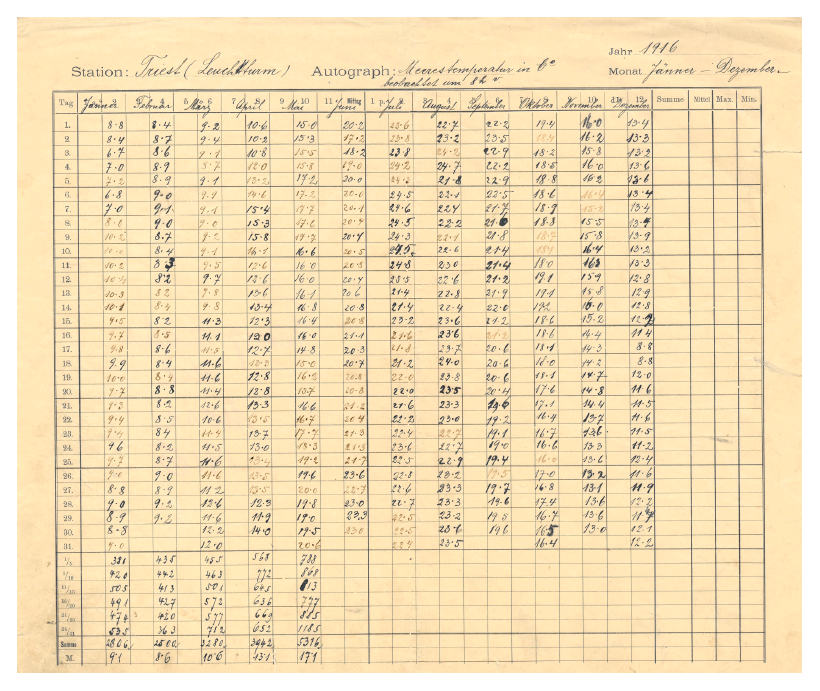 Jahr 1916
Station: Triest (Leuchtturm) Autograph: Meerestemperatur in C°
beobachtet um 8h v
Monat Jänner – Dezember
Tag Jänner Februar März April Mai Juni Mittag Juli August September Oktober November Dezember Summe Mittel Max. Min.
1. 8·8 8·4 9·2 10·6 15·0 20·2 22·7 22·2 19·4 16·0 13·4
2. 8·4 8·7 9·4 10·2 15·3 23·2 23·5 16·2 13·3
3. 6·7 8·6 9·1 10·8 15·5 18·2 23·8 22·9 18·2 15·8 13·3
4. 7·0 8·9 12·0 15·8 19·0 24·2 24·7 22·2 18·5 16·0 13·6
5. 7·2 8·9 9·1 17·2 20·0 21·8 22·9 18·8 16·2 13·6
6. 6·8 9·0 9·1 14·6 17·2 20·0 24·5 22·1 22·5 18·6 16·4 13·4
7. 7·0 9·1 9·1 15·4 17·7 20·1 24·6 22·4 21·7 18·9 13·4
8. 9·0 9·0 15·3 17·6 24·5 22·2 21·6 18·8 15·5
9. 10·2 8·7 9·2 15·8 20·4 24·3 21·8 18·7 15·8 13·9
10. 10·0 8·4 9·1 16·1 16·6 20·5 22·6 21·4 16·4 13·2
11. 10·2 8·3 9·5 12·6 16·0 20·8 24·8 23·0 21·4 18·0 16·3 13·3
12. 10·4 8·2 9·7 12·6 16·0 20·4 22·6 21·2 19·1 15·9 12·8
13. 10·3 8·2 13·6 16·1 20·6 21·4 22·8 21·9 19·1 15·8 12·9
14. 10·1 8·4 9·8 13·4 16·8 20·8 21·4 22·4 22·0 16·0 12·8
15. 9·5 8·2 11·3 12·3 16·4 20·8 23·2 23·6 21·2 18·6 15·2
16. 9·7 8·5 11·1 12·0 16·0 21·1 21·6 23·6 21·2 18·6 14·4 11·4
17. 9·8 8·6 11·5 12·7 14·8 20·3 21·8 23·7 20·6 18·1 14·3 8·8
18. 9·9 8·4 11·6 15·0 20·7 21·2 24·0 20·6 18·0 14·2 8·8
19. 10·0 8·4 11·6 12·8 16·2 20·8 22·0 23·8 20·6 18·1 14·7 12·0
20. 9·7 8·8 11·4 12·8 20·8 22·0 23·5 20·4 17·6 14·8 11·6
21. 9·3 8·2 12·6 13·3 16·6 21·2 21·6 23·3 19·6 17·1 14·4 11·5
22. 9·4 8·5 10·6 13·5 16·7 20·4 22·2 23·0 19·2 16·4 13·7 11·6
23. 9·4 8·4 11·4 13·7 17·7 21·3 22·4 22·7 19·1 16·7 13·6 11·5
24. 9·6 8·2 11·5 13·0 18·3 21·3 23·6 22·7 19·0 16·6 13·3 11·2
25. 9·7 8·7 11·6 13·4 19·2 21·7 22·5 22·9 19·4 16·0 13·6 12·4
26. 9·0 9·0 11·6 13·5 19·6 23·6 22·8 23·2 19·5 17·0 13·2 11·6
27. 8·8 8·9 11·2 13·5 20·0 22·7 22·6 23·3 19·7 16·8 13·1 11·9
28. 9·0 9·2 12·6 12·3 19·8 23·0 22·7 23·3 19·6 17·4 13·6 12·2
29. 8·9 9·2 11·6 11·9 19·0 23·3 22·5 23·2 19·5 16·7 13·6
30. 8·8 12·2 14·0 19·5 23·0 22·5 23·6 19·6 16·5 13·0 12·1
31. 9·0 12·0 20·6 22·4 23·5 16·4 12·2
1/5 381 435 455 568 788
6/10 420 442 463 772 868
11/15 505 413 501 645 813
16/20 491 427 572 636 777
21/25 474 420 577 669 885
26/31 535 363 712 652 1185
Summe 2806 2500 3280 3942 5316
M. 9·1 8·6 10·6 13·1 17·1